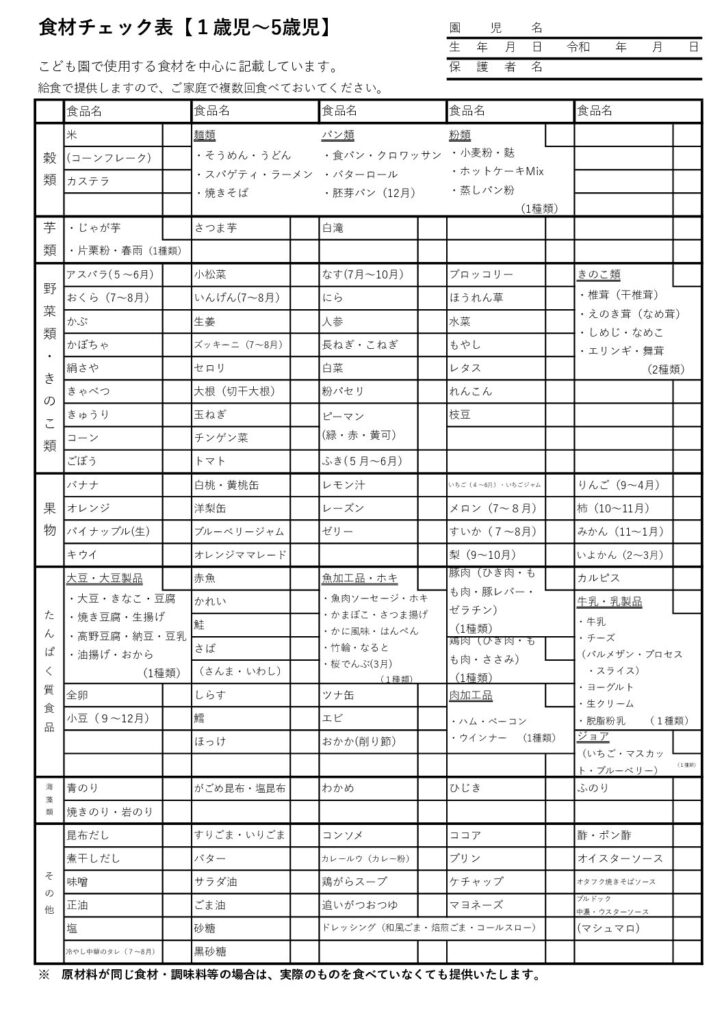 食材チェック表【１歳児～5歳児】
園　児　名
生　年　月　日　令和　年　月　日
保　護　者　名
こども園で使用する食材を中心に記載しています。
給食で提供しますので、ご家庭で複数回食べておいてください。
食品名　食品名　食品名　食品名　食品名
穀類
米
(コーンフレーク)
カステラ
麺類
・そうめん・うどん
・スパゲティ・ラーメン
・焼きそば
パン類
・食パン・クロワッサン
・バターロール
・胚芽パン（12月）
粉類
・小麦粉・麩
・ホットケーキMix
・蒸しパン粉
（1種類）
芋類
・じゃが芋
・片栗粉・春雨（1種類）
さつま芋
白滝
野菜類・きのこ類
アスパラ(５～6月)
おくら（7～8月）
かぶ
かぼちゃ
絹さや
きゃべつ
きゅうり
コーン
ごぼう
小松菜
いんげん(7～8月)
生姜
ズッキーニ（7～8月）
セロリ
大根（切干大根）
玉ねぎ
チンゲン菜
トマト
なす(7月～10月)
にら
人参
長ねぎ・こねぎ
白菜
粉パセリ
ピーマン
(緑・赤・黄可）
ふき(５月～6月）
ブロッコリー
ほうれん草
水菜
もやし
レタス
れんこん
枝豆
きのこ類
・椎茸（干椎茸）
・えのき茸（なめ茸）
・しめじ・なめこ
・エリンギ・舞茸
（2種類）
果物
バナナ
オレンジ
パイナップル(生)
キウイ
白桃・黄桃缶
洋梨缶
ブルーベリージャム
オレンジママレード
レモン汁
レーズン
ゼリー
いちご（４～6月）・いちごジャム
メロン（7～８月）
すいか（７～8月）
梨（9～10月）
りんご（9～4月）
柿（10～11月）
みかん（11～1月）
いよかん（2～3月）
たんぱく質食品
大豆・大豆製品
・大豆・きなこ・豆腐
・焼き豆腐・生揚げ
・高野豆腐・納豆・豆乳
・油揚げ・おから
（1種類）
全卵
小豆（９～12月）
赤魚
かれい
鮭
さば
（さんま・いわし）
しらす
鱈
ほっけ
魚加工品・ホキ
・魚肉ソーセージ・ホキ
・かまぼこ・さつま揚げ
・かに風味・はんぺん
・竹輪・なると
・桜でんぶ(3月)
（１種類）
ツナ缶
エビ
おかか(削り節）
豚肉（ひき肉・も
も肉・豚レバー・
ゼラチン）
（1種類）
鶏肉（ひき肉・も
も肉・ささみ）
（1種類）
肉加工品
・ハム・ベーコン
・ウインナー　（1種類）
カルピス
牛乳・乳製品
・牛乳
・チーズ
（パルメザン・プロセス
・スライス）
・ヨーグルト
・生クリーム
・脱脂粉乳　（１種類）
ジョア
（いちご・マスカッ
ト・ブルーベリー）
（１種類）
海藻類
青のり
焼きのり・岩のり
がごめ昆布・塩昆布
わかめ
ひじき
ふのり
その他
昆布だし
煮干しだし
味噌
正油
塩
冷やし中華のタレ（７～8月）
すりごま・いりごま
バター
サラダ油
ごま油
砂糖
黒砂糖
コンソメ
カレールウ（カレー粉）
鶏がらスープ
追いがつおつゆ
ドレッシング（和風ごま・焙煎ごま・コールスロー）
ココア
プリン
ケチャップ
マヨネーズ
酢・ポン酢
オイスターソース
オタフク焼きそばソース
ブルドック
中濃・ウスターソース
(マシュマロ)
※　原材料が同じ食材・調味料等の場合は、実際のものを食べていなくても提供いたします。